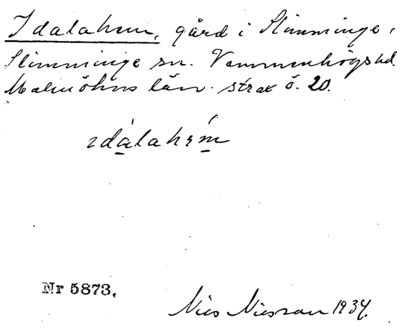 Idalahem, gård i Slimminge,
Slimminge sn. Vemmenhögs hd.
Malmöhus län. strax ö. 20.
idàlahém
Nr 5873.
Nils Nilsson 1934.